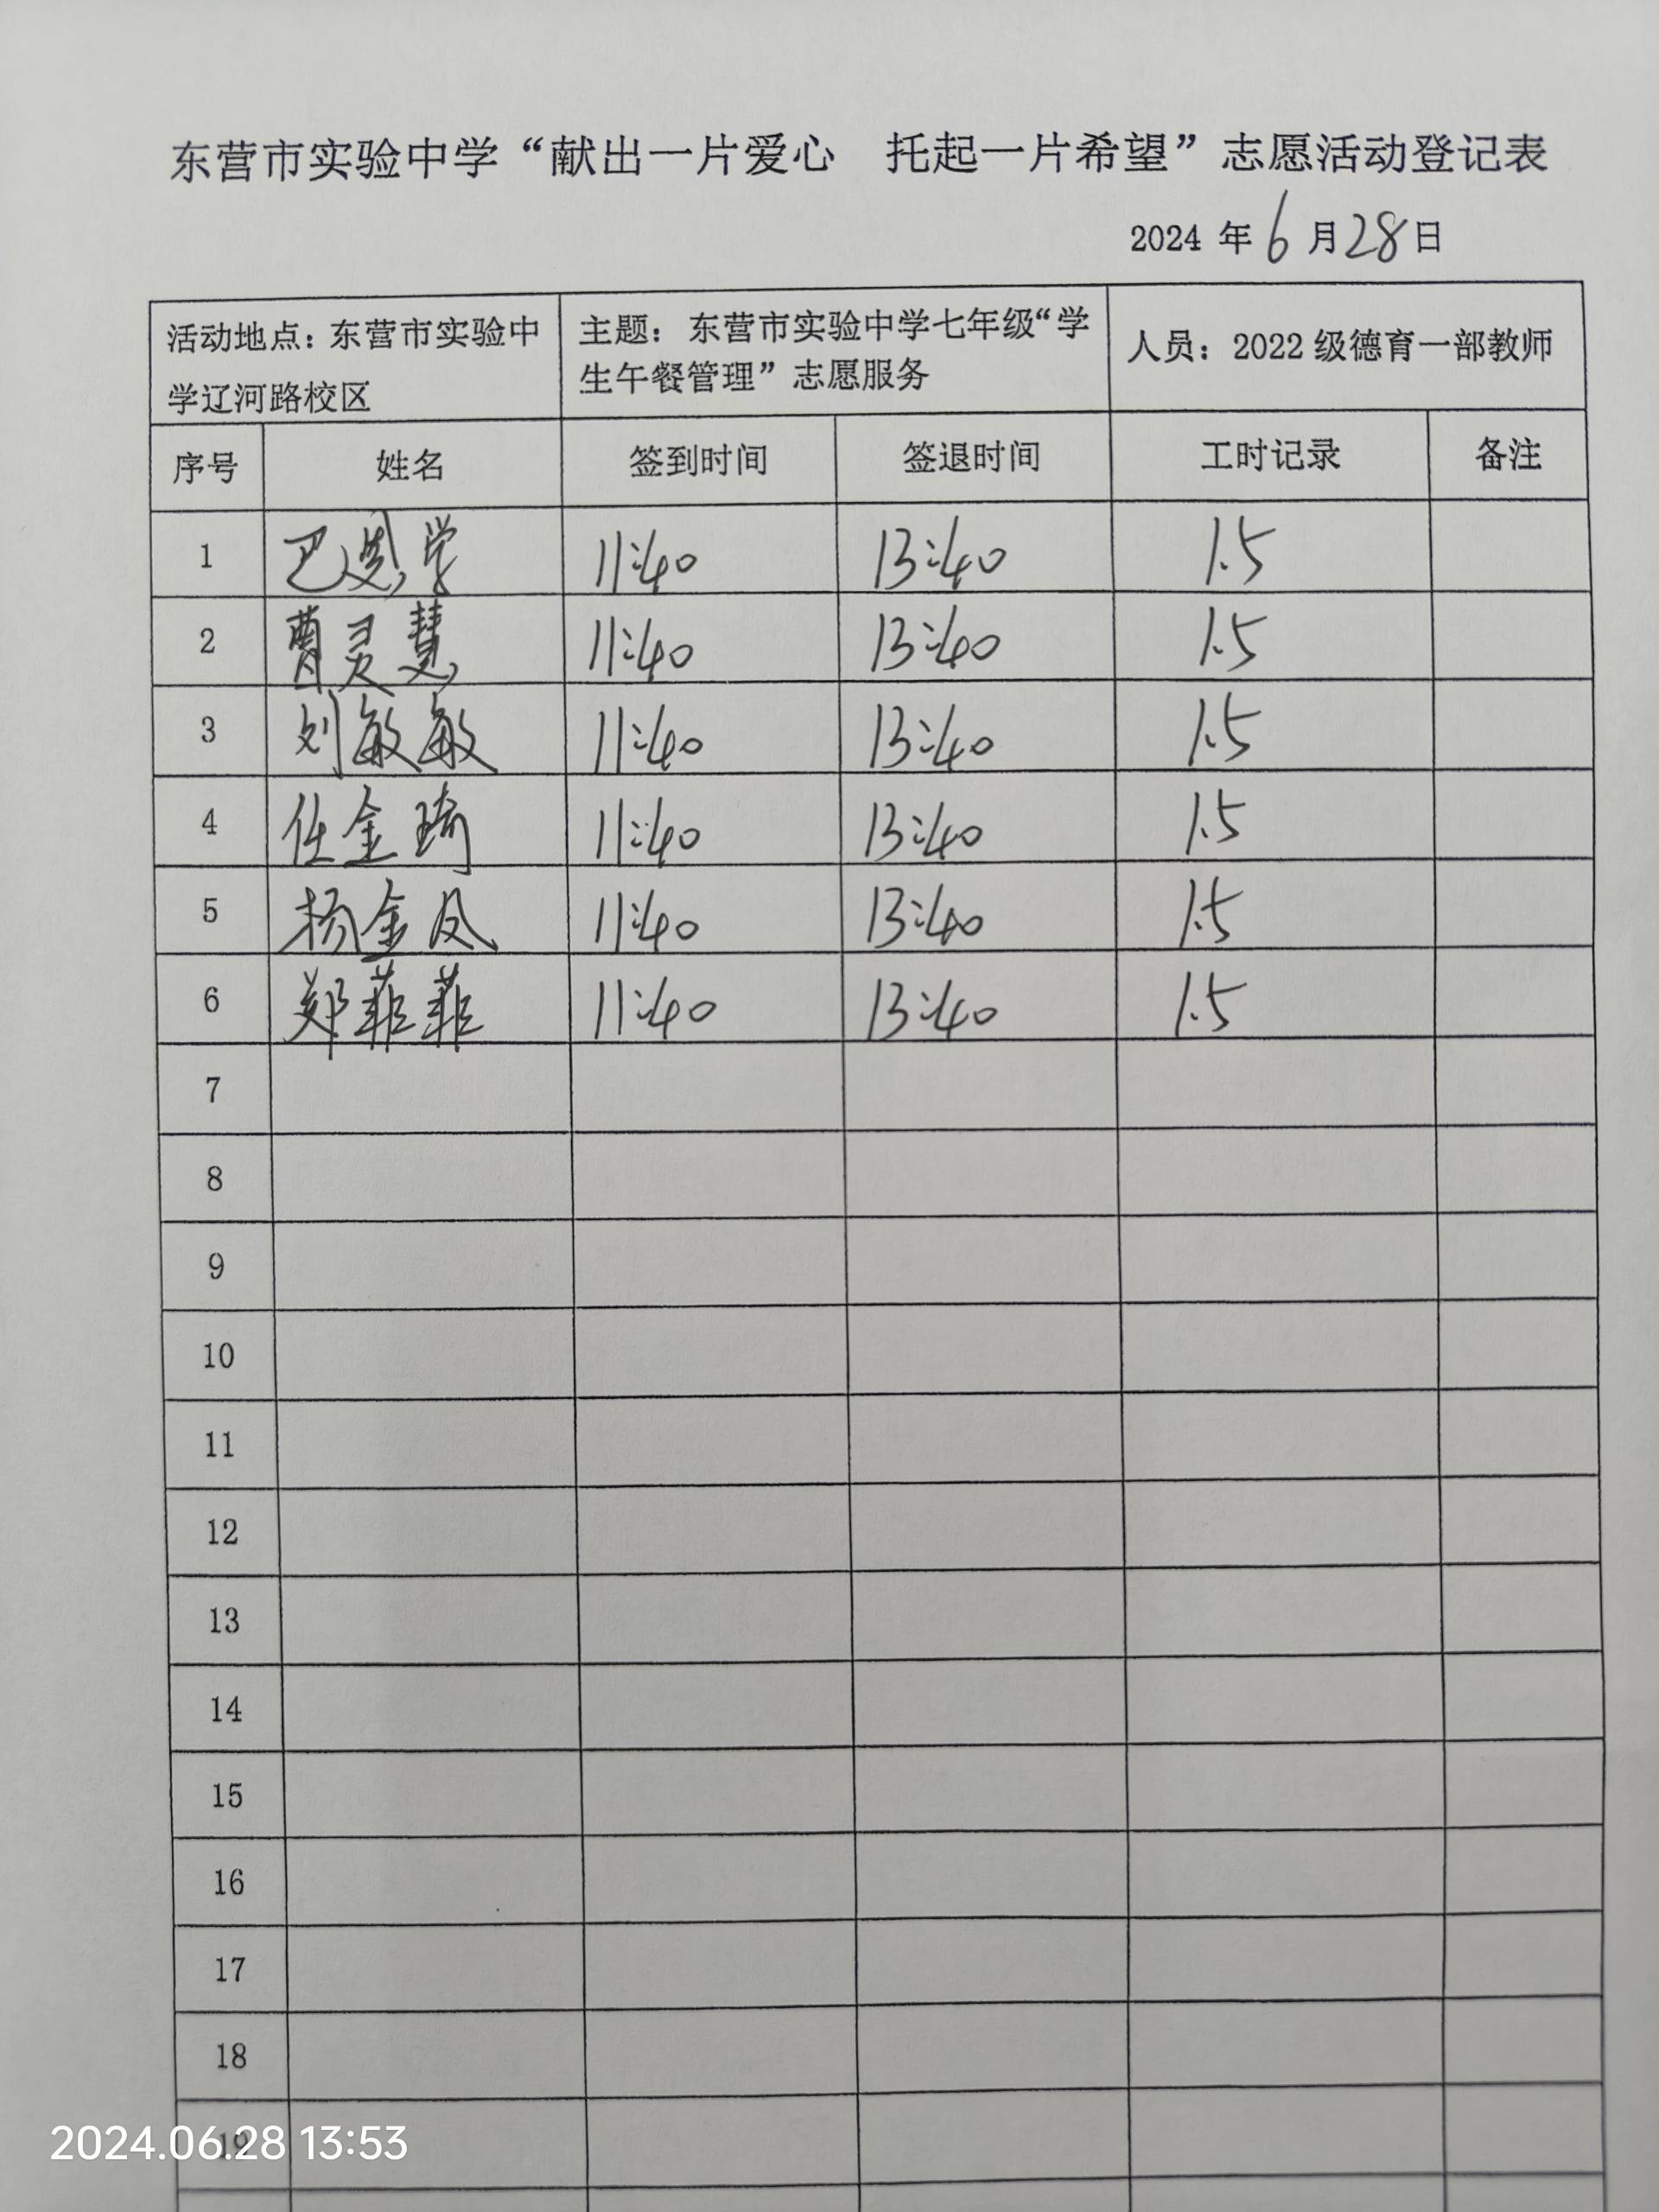 东营市实验中学“献出一片爱心 托起一片希望”志愿活动登记表
2024 年 6 月 28 日
活动地点：东营市实验中
学辽河路校区
主题： 东营市实验中学七年级“学
生午餐管理”志愿服务
人员：2022 级德育一部教师
序号 姓名 签到时间 签退时间 工时记录 备注
1 巴 学 11:40 13:40 1.5
2 曹灵慧 11:40 13:40 1.5
3 刘敏敏 11:40 13:40 1.5
4 任金琦 11:40 13:40 1.5
5 杨金凤 11:40 13:40 1.5
6 郑菲菲 11:40 13:40 1.5
7
8
9
10
11
12
13
14
15
16
17
18
19
2024.06.28 13:53